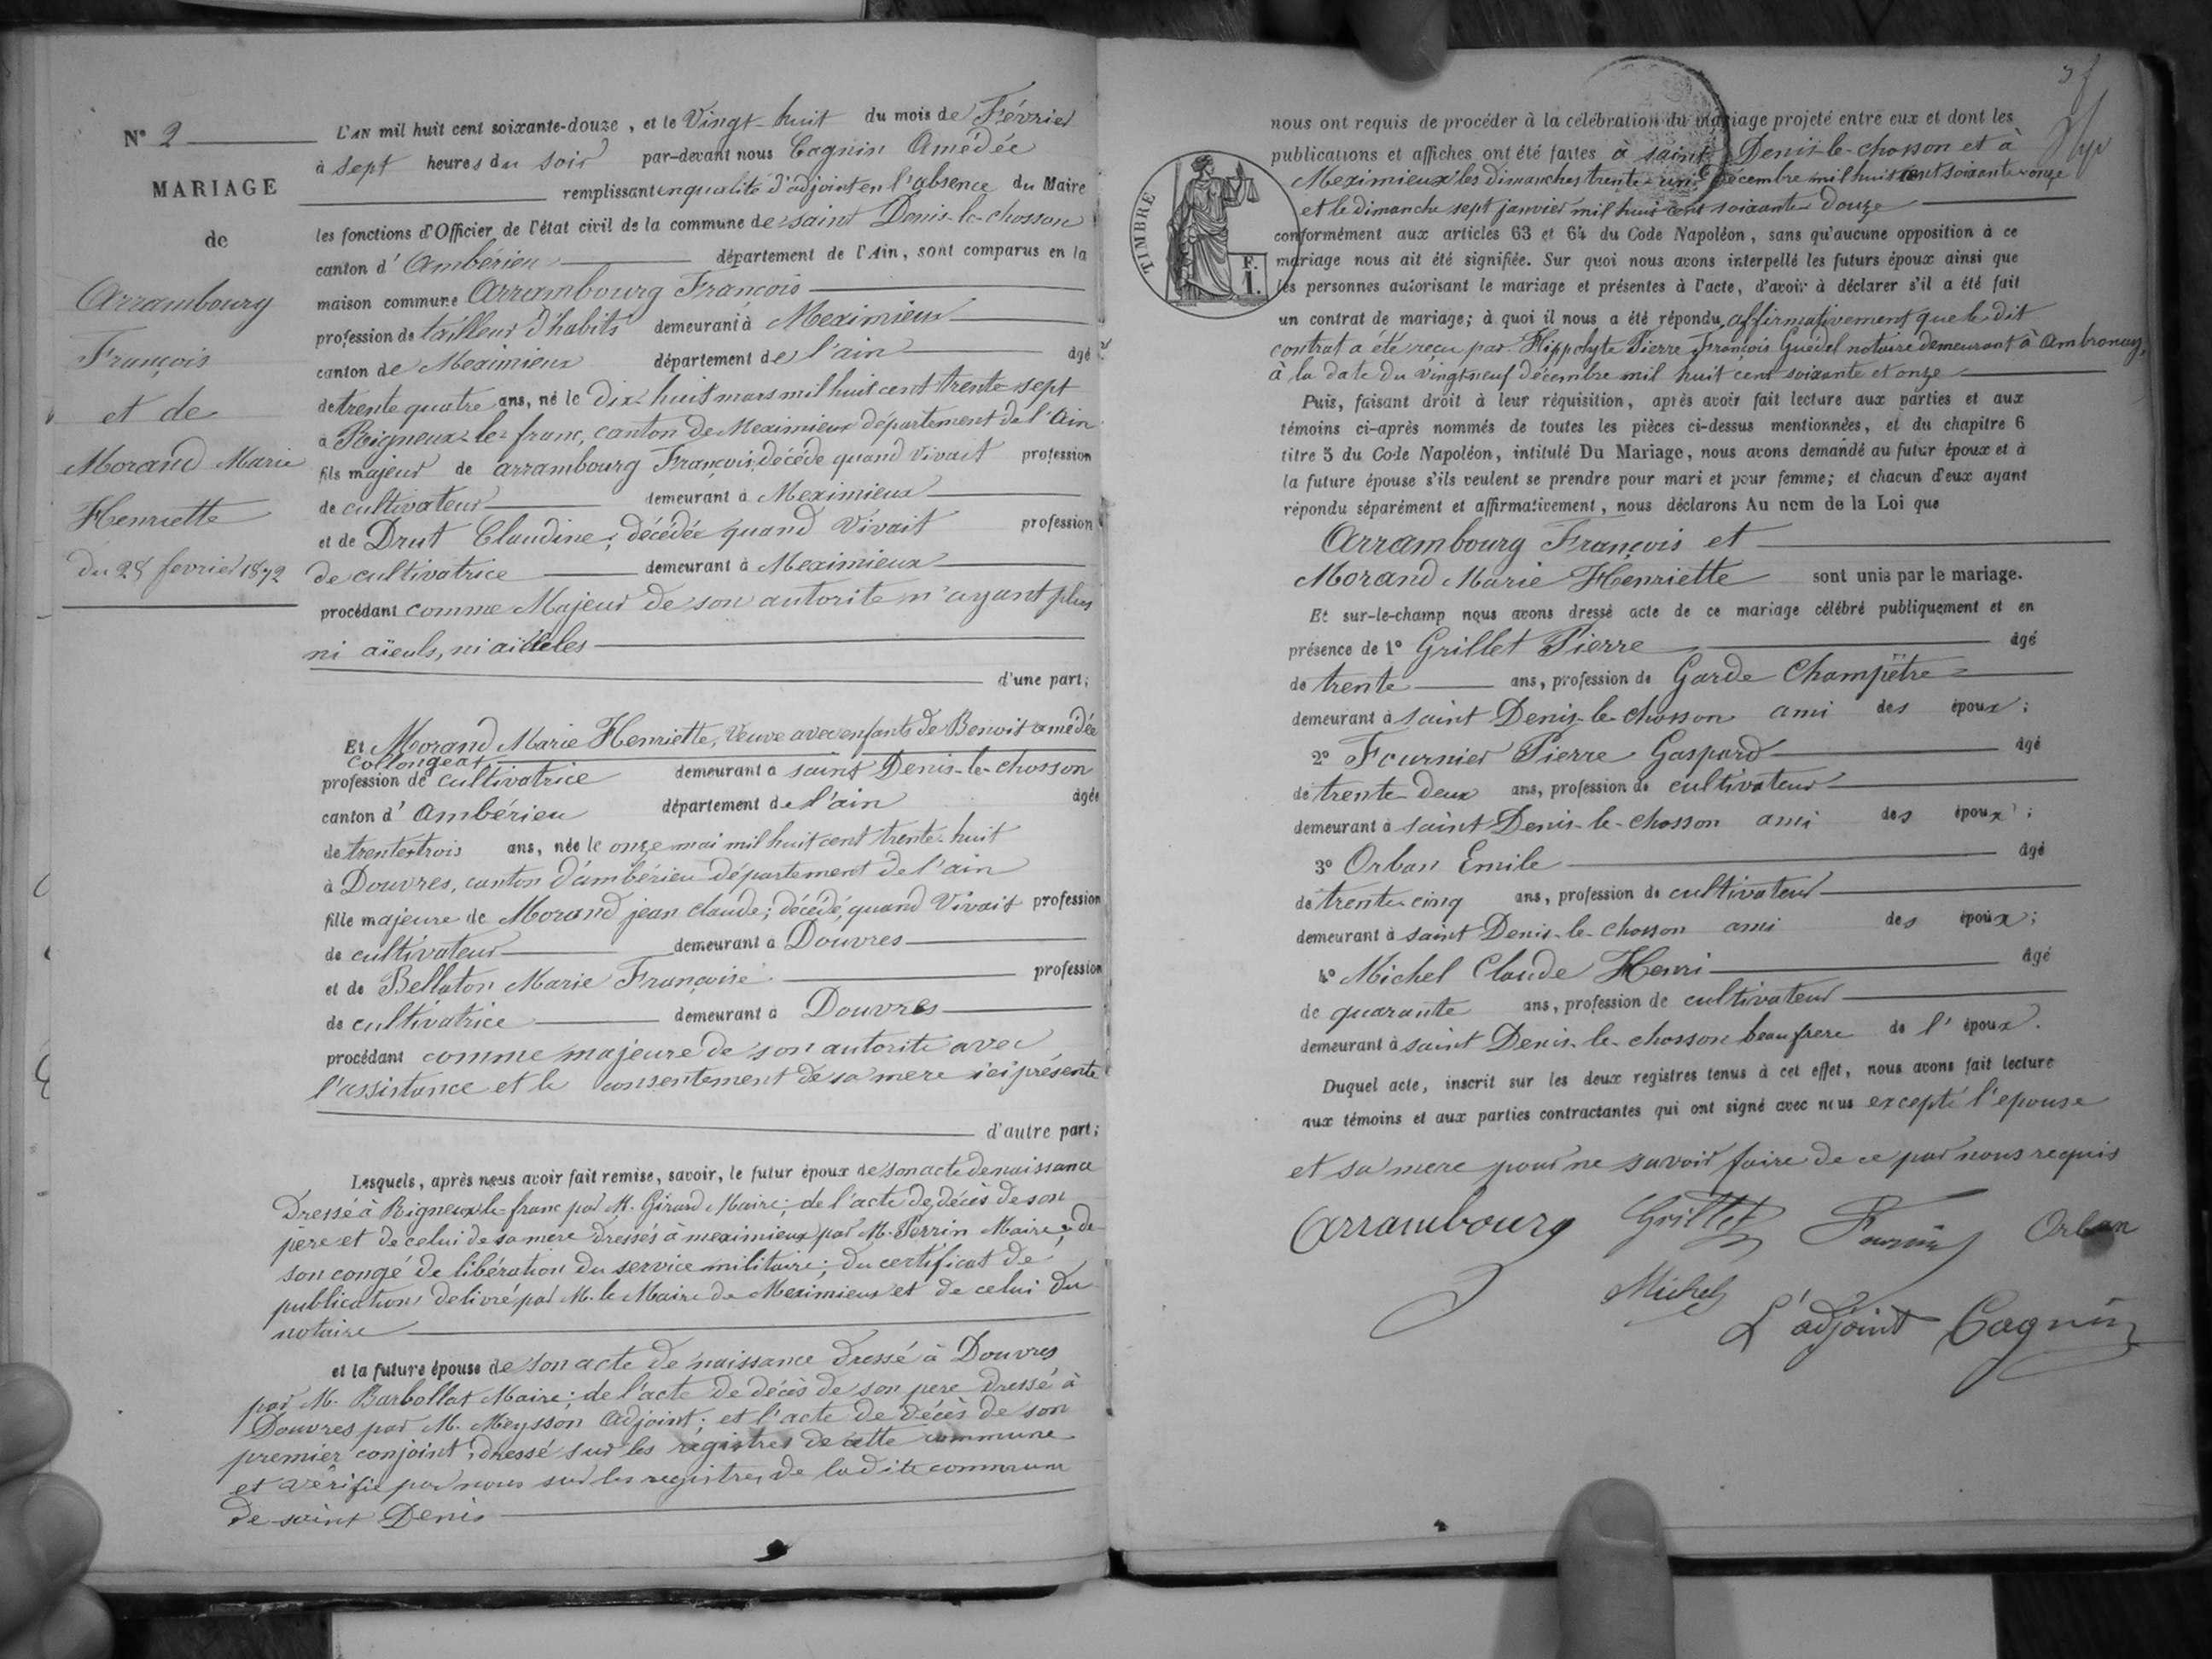 N° 2
MARIAGE
de
Arrambourg
François
et de
Morand Marie
Henriette
du 28 fevrier 1872
L'AN mil huit cent soixante-douze, et le Vingt-huit du mois de Février
à sept heures du soir par-devant nous Cagnin Amédée
remplissant en qualité d'adjoint en l'absence du Maire
les fonctions d'Officier de l'état civil de la commune de saint Denis-le-chosson
canton d'Ambérieu département de l'Ain, sont comparus en la
maison commune Arrambourg François
profession de tailleur d'habits demeurant à Meximieux
canton de Meximieux département de l'ain âgé
de trente quatre ans, né le Dix-huit mars mil huit cent trente sept
à Rigneux-le-franc, canton de Meximieux département de l'Ain
fils majeur de arrambourg François, décédé quand Vivait profession
de cultivateur demeurant à Meximieux
et de Drut Claudine; décédée quand Vivait profession
de cultivatrice demeurant à Meximieux
procédant comme Majeur de son autorite n'ayant plus
ni aïeuls, ni aïeules
d'une part;
Et Morand Marie Henriette, Veuve avec enfants de Benoit amédée
Collongeat
profession de cultivatrice demeurant à saint Denis-le-chosson
canton d'Ambérieu département de l'ain âgée
de trente-trois ans, née le onze mai mil huit cent trente-huit
à Douvres, canton d'ambérieu département de l'ain
fille majeure de Morand jean claude; décédé, quand Vivait profession
de cultivateur demeurant à Douvres
et de Bellaton Marie Françoise profession
de cultivatrice demeurant à Douvres
procédant comme majeure de son autorite avec
l'assistance et le consentement de sa mere ici présente
d'autre part;
Lesquels, après nous avoir fait remise, savoir, le futur époux de son acte de naissance
Dressé à Rigneux-le-franc par M. Girard Maire; de l'acte de décès de son
père et de celui de sa mere dressés à meximieux par M. Perrin Maire; de
son congé de libération du service militaire; du certificat de
publication delivré par M. le Maire de Meximieux et de celui du
notaire
et la future épouse de son acte de naissance dressé à Douvres
par M. Barbollat Maire; de l'acte de décès de son pere dressé à
Douvres par M. Meysson Adjoint; et l'acte de décès de son
premier conjoint, dressé sur les régistres de cette commune
et vérifié par nous sur les registres de ladite commune
de saint Denis
TIMBRE
F.
1.
nous ont requis de procéder à la célébration du mariage projeté entre eux et dont les
publications et affiches ont été faites à saint Denis-le-chosson et à
Meximieux les dimanches trente-un Décembre mil huit cent soixante-onze
et le dimanche sept janvier mil huit cent soixante-douze
conformément aux articles 63 et 64 du Code Napoléon, sans qu'aucune opposition à ce
mariage nous ait été signifiée. Sur quoi nous avons interpellé les futurs époux ainsi que
les personnes autorisant le mariage et présentes à l'acte, d'avoir à déclarer s'il a été fait
un contrat de mariage; à quoi il nous a été répondu affirmativement que le dit
contrat a été reçu par Hippolyte Pierre François Guédel notaire demeurant à Ambronay,
à la date du vingt-neuf décembre mil huit cent soixante et onze
Puis, faisant droit à leur réquisition, après avoir fait lecture aux parties et aux
témoins ci-après nommés de toutes les pièces ci-dessus mentionnées, et du chapitre 6
titre 5 du Code Napoléon, intitulé Du Mariage, nous avons demandé au futur époux et à
la future épouse s'ils veulent se prendre pour mari et pour femme; et chacun d'eux ayant
répondu séparément et affirmativement, nous déclarons Au nom de la Loi que
Arrambourg François et
Morand Marie Henriette sont unis par le mariage.
Et sur-le-champ nous avons dressé acte de ce mariage célébré publiquement et en
présence de 1° Grillet Pierre âgé
de trente ans, profession de Garde Champêtre
demeurant à saint Denis-le-chosson ami des époux;
2° Fournier Pierre Gaspard âgé
de trente-deux ans, profession de cultivateur
demeurant à saint Denis-le-chosson ami des époux;
3° Orban Emile âgé
de trente-cinq ans, profession de cultivateur
demeurant à saint Denis-le-chosson ami des époux;
4° Michel Claude Henri âgé
de quarante ans, profession de cultivateur
demeurant à saint Denis-le-chosson beau frere de l'époux.
Duquel acte, inscrit sur les deux registres tenus à cet effet, nous avons fait lecture
aux témoins et aux parties contractantes qui ont signé avec nous excepté l'epouse
et sa mere pour ne savoir faire de ce par nous requis
Arrambourg Grillet Fournier Orban
Michel
L'adjoint Cagnin